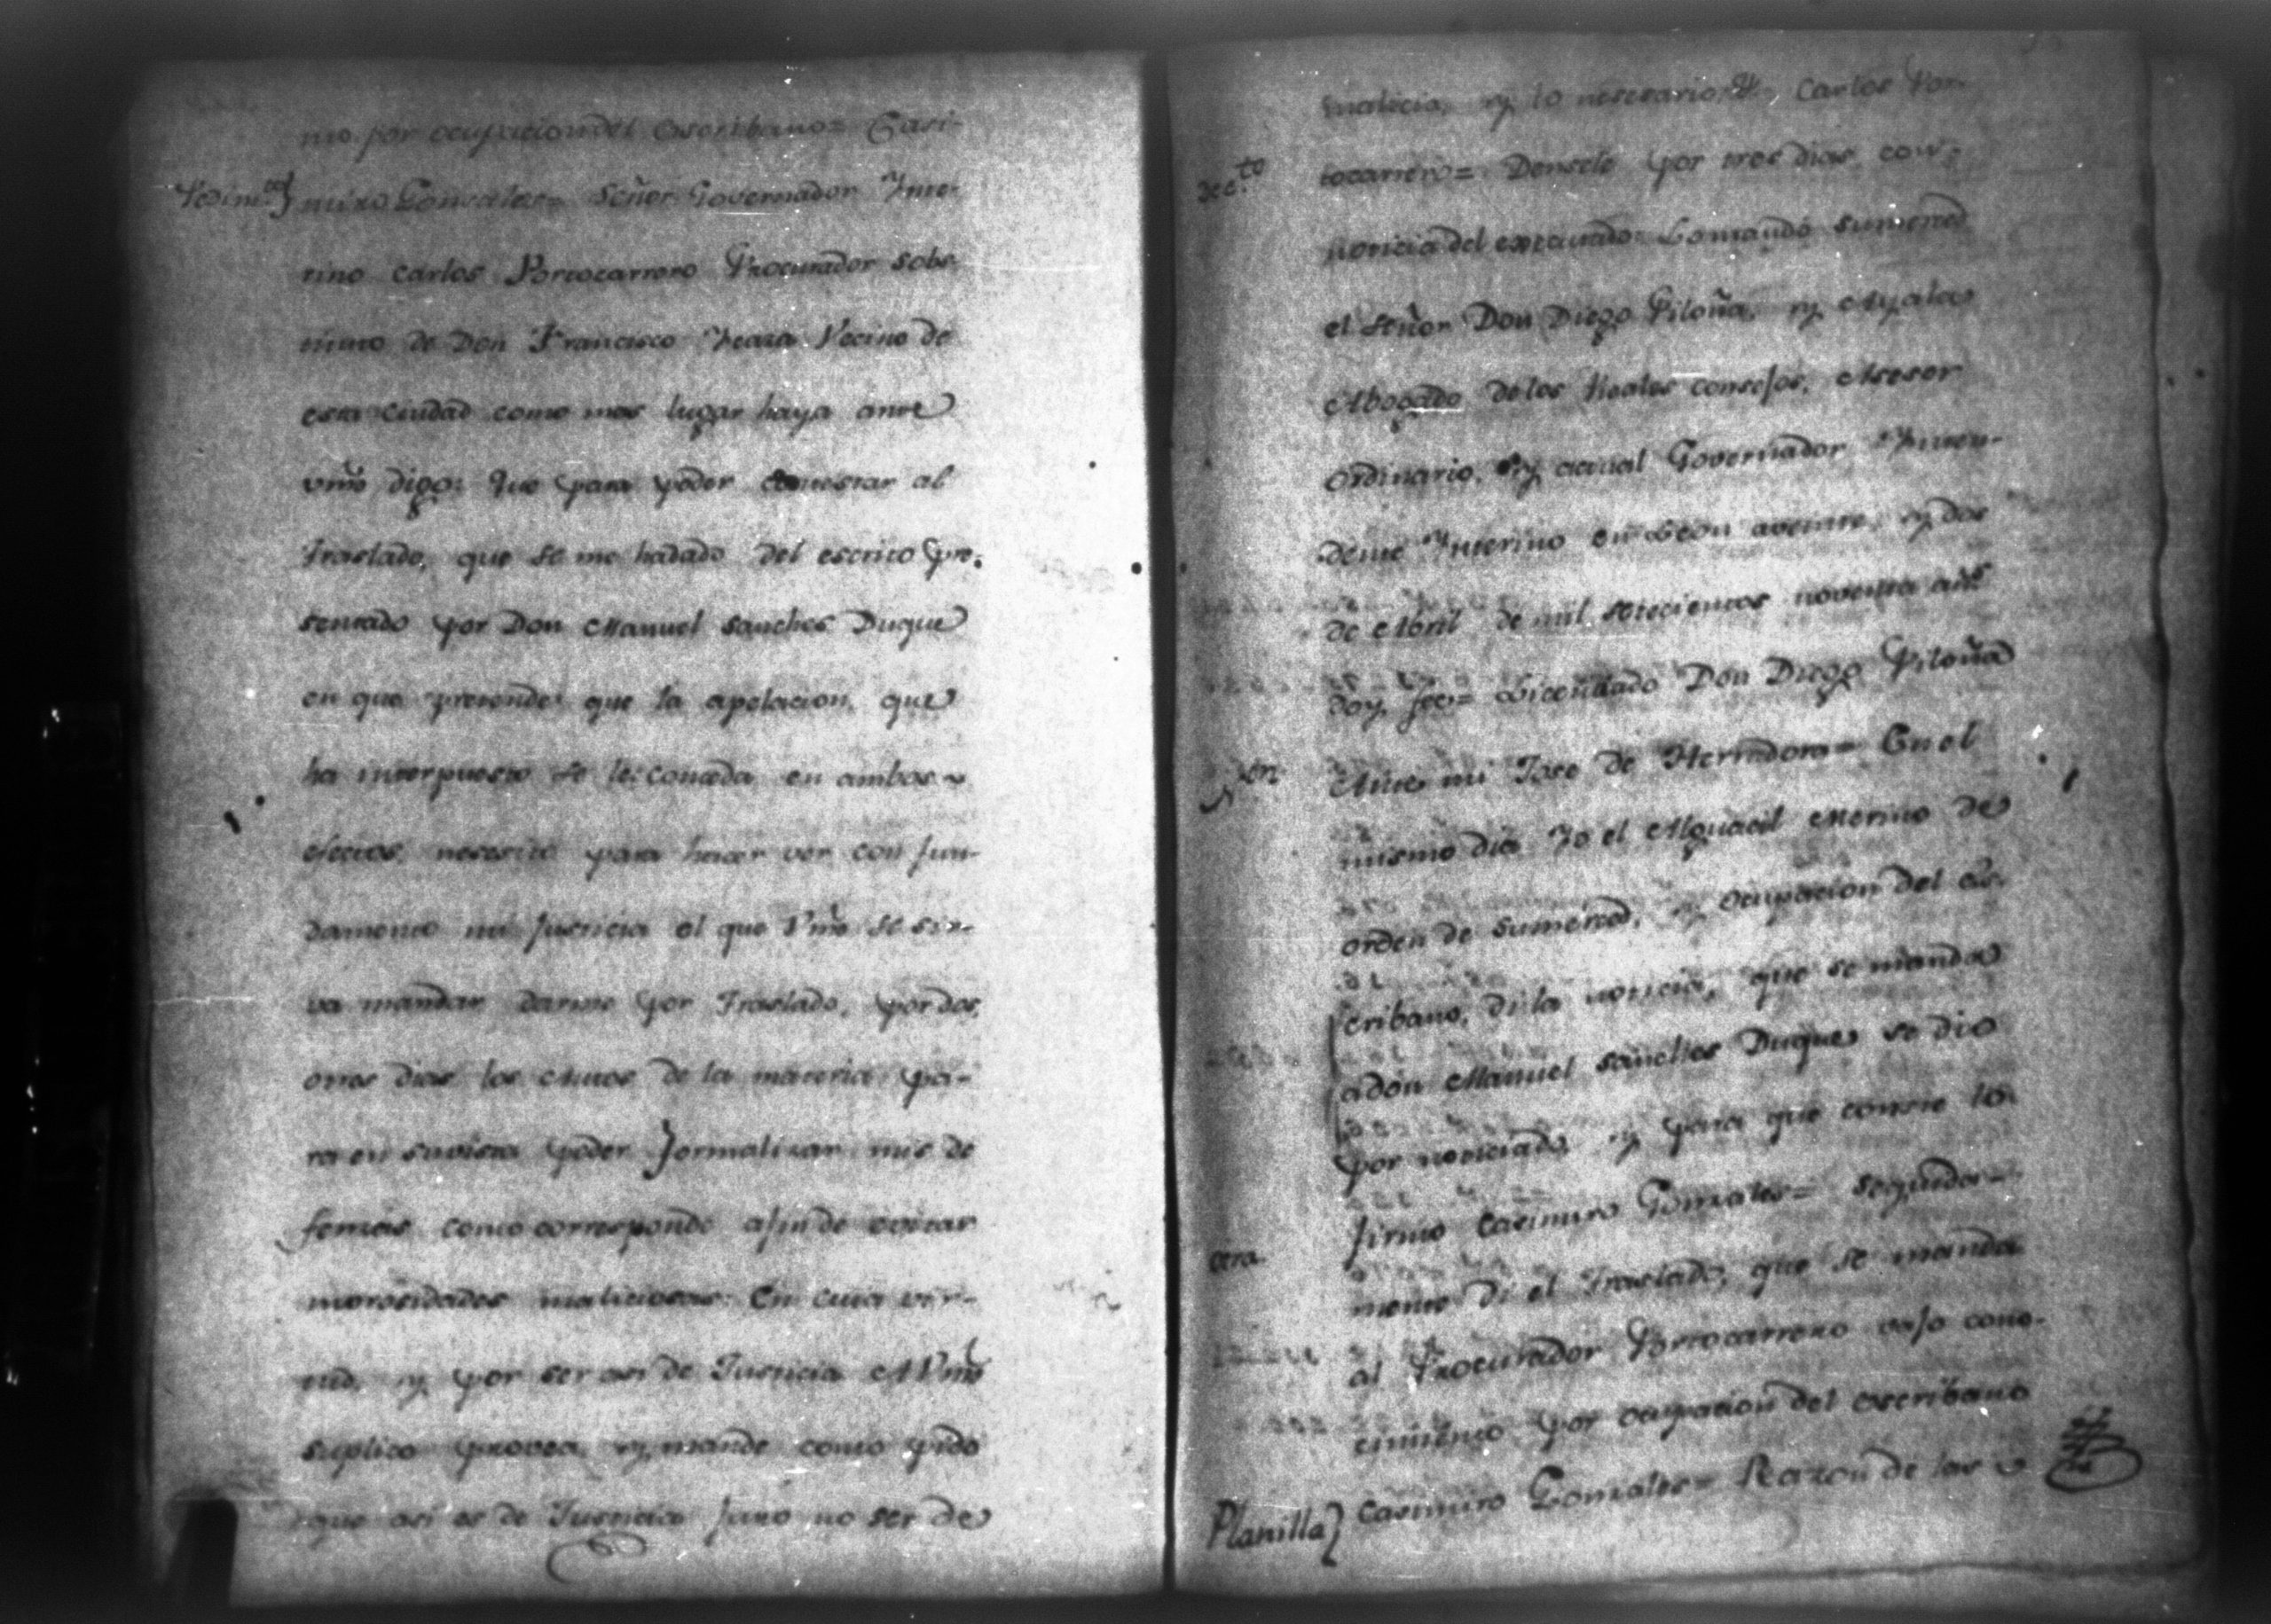 mo por ocupacion del escribano= Casi-
Pedimto} miro Gonzales= Señor Governador Ynte-
rino Carlos Portocarrero Procurador sobs-
tituto de Don Francisco Vecino de
esta ciudad como mas lugar haya ante
vmd digo: Que para poder contestar al
traslado, que se me hadado del escrito pre-
sentado por Don Manuel Sanches Duque
en que pretende que la apelacion, que
ha interpuesto se le conceda en ambos
efectos, necesito para hacer ver con fun-
damento mi justicia el que Vmd se sir-
va mandar darme por Traslado, por dos,
otros dias los Autos de la materia pa-
ra en suvista poder formalizar mis de
fensas como corresponde afin de evitar
morosidades maliciosas: En cuia vir-
tud, y por ser asi de Justicia A Vmd
suplico provea y mande como pido
que asi es de Justicia juro no ser de
malicia, y lo necesario &a Carlos Por-
decto tocarrero= Densele por tres dias con
noticia del executado: Lo mandó sumerced
el Señor Don Diego Piloña, y Ayala
Abogado delos Reales consejos, Asesor
Ordinario, y actual Governador Ynten-
dente Ynterino en Leon aveinte, y dos
de Abril de mil setecientos noventa años
doy fee= Licenciado Don Diego Piloña
Ante mi Jose de Herradora= En el
mismo dia Yo el Alguacil Merino de
orden de sumerced, y ocupacion del es-
cribano, di la noticia, que se manda
adon Manuel Sanches Duque se dio
por noticiado, y para que conste lo
firmo Casimiro Gonzales= Seguida-
otra mente di el Traslado, que se manda
al Procurador Portocarrero vajo cono-
cimiento por ocupacion del escribano
Planilla} Casimiro Gonzales= Razon de las